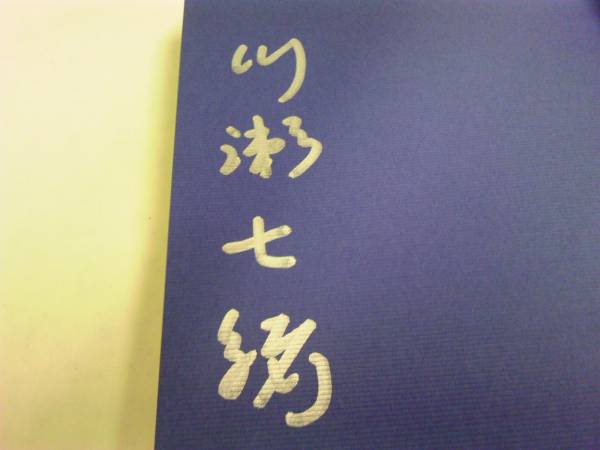 川瀬七緒